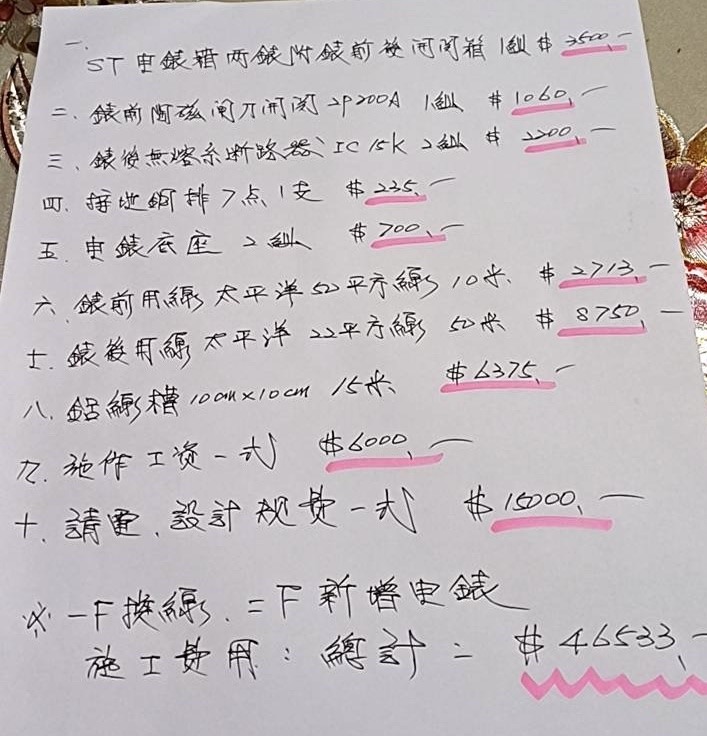 一.
ST电錶箱两錶附錶前後开闭箱1組$3500.-
二、錶前陶磁闸刀開関2P200A 1組 $1060.-
三、錶後無熔糸断路器IC15K 2組 $2200.-
四.接地銅排7点1支 $235.-
五.电錶底座2組 $700.-
六.錶前用線太平洋50平方線10米.$2713.-
七.錶後用線太平洋22平方線50米 $8750.-
八.鋁線槽10cm×10cm 15米、$6375.-
九.施作工资一式 $6000.-
十.請电.設計规费一式 $15000.-
※一F換線.二F新增电錶
施工费用:總計=$46533.-